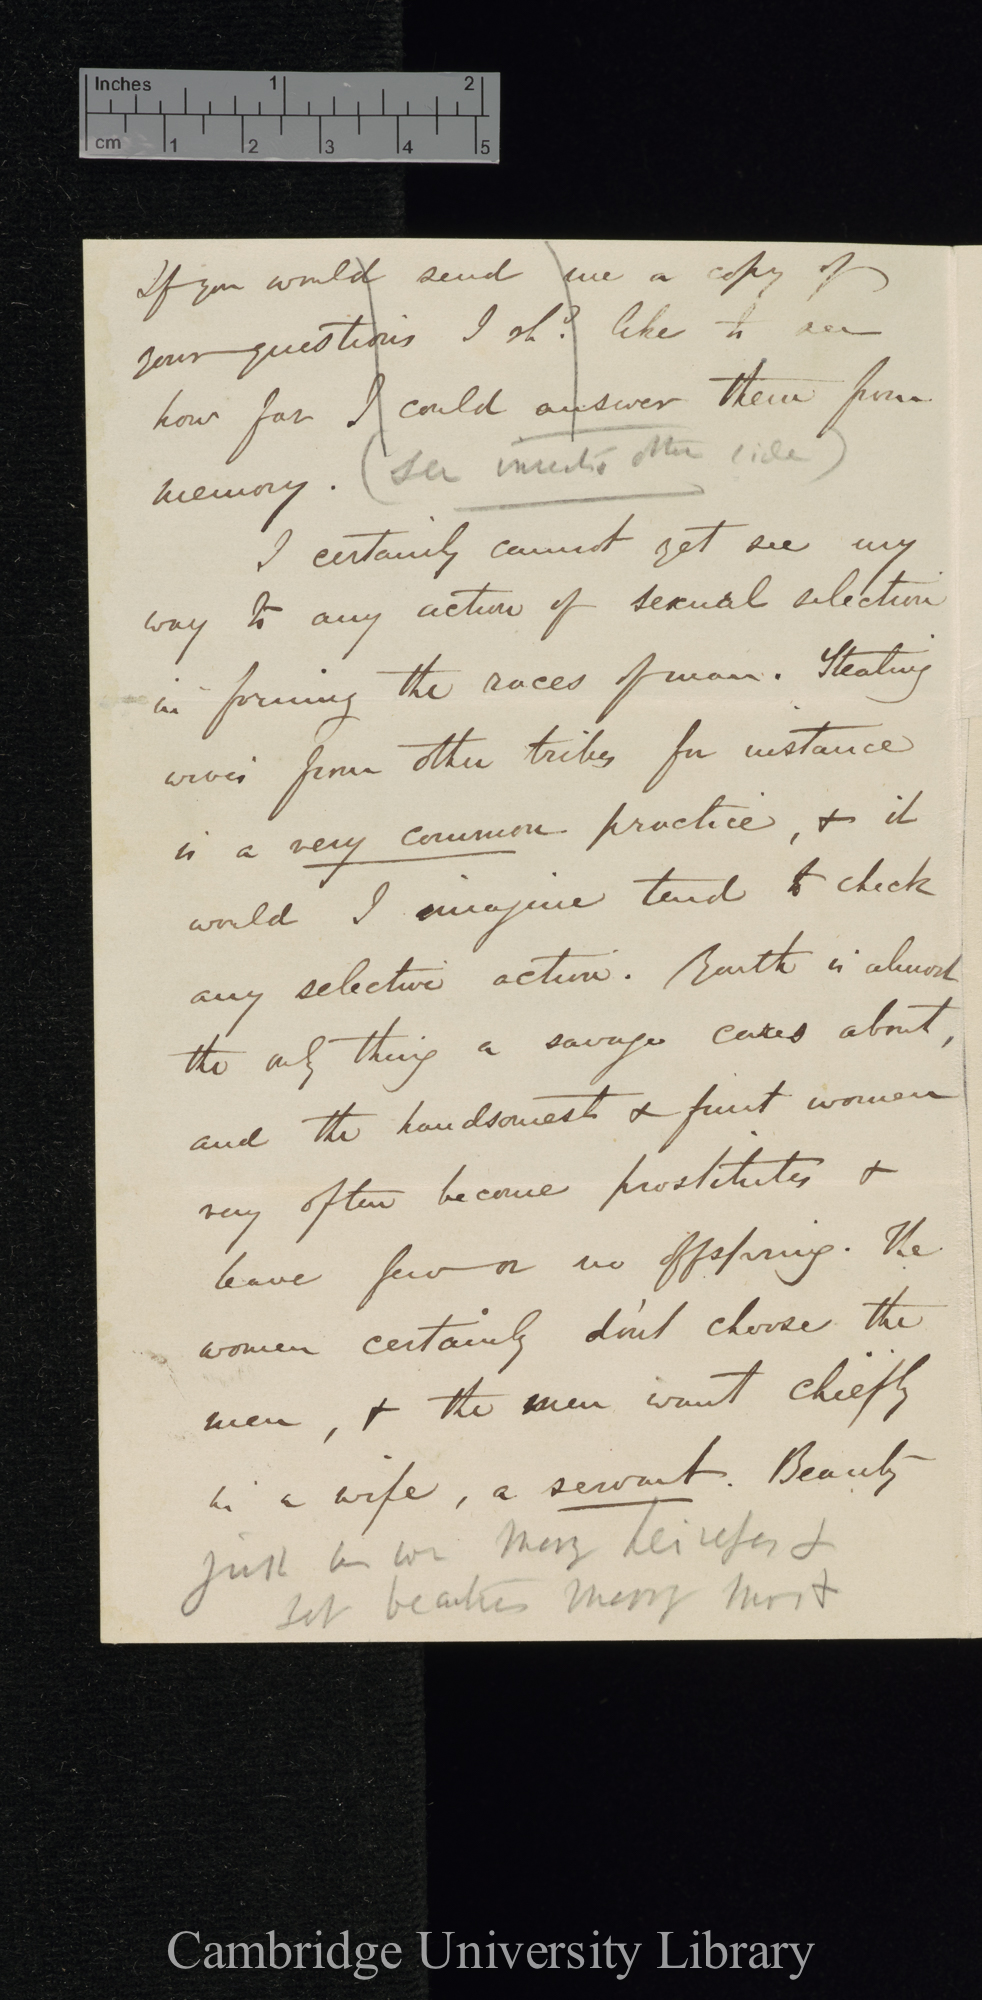 Inches 1 2
cm 1 2 3 4 5
If you would send me a copy of
your questions I shd. like to see
how far I could answer them from
memory. (see insects other side)
I certainly cannot yet see my
way to any action of sexual selection
in forming the races of man. Stealing
wives from other tribes for instance
is a very common practice, & it
would I imagine tend to check
any selective action. Youth is almost
the only thing a savage cares about,
and the handsomest & finest women
very often become prostitutes &
leave few or no offspring. The
women certainly don't choose the
men, & the men want chiefly
in a wife, a servant. Beauty
just as we marry heiresses &
yet beauties marry most
Cambridge University Library